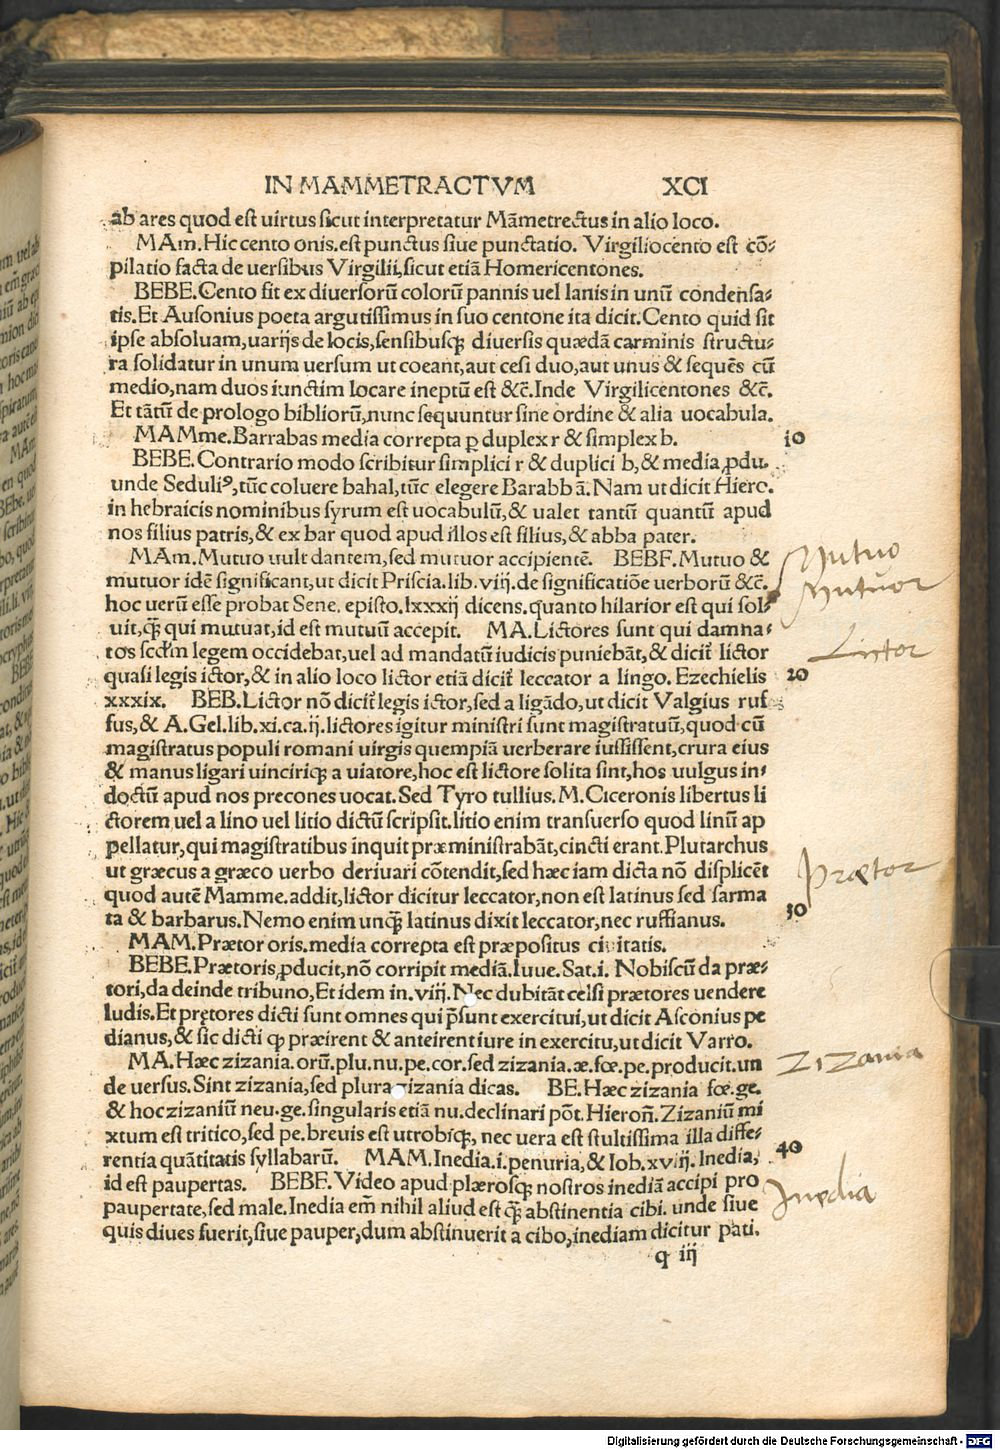 IN MAMMETRACTVM XCI
ab ares quod est uirtus sicut interpretatur Mãmetrectus in alio loco.
MAm. Hic cento onis. est punctus siue punctatio. Virgiliocento est cõ-
pilatio facta de uersibus Virgilii, sicut etiã Homericentones.
BEBE. Cento fit ex diuersorũ colorũ pannis uel lanis in unũ condensa-
tis. Et Ausonius poeta argutissimus in suo centone ita dicit. Cento quid sit
ipse absoluam, uarijs de locis, sensibusqꝫ diuersis quædã carminis structu-
ra solidatur in unum uersum ut coeant, aut cesi duo, aut unus & sequẽs cũ
medio, nam duos iunctim locare ineptũ est &c̃. Inde Virgilicentones &c̃.
Et tãtũ de prologo bibliorũ, nunc sequuntur sine ordine & alia uocabula.
MAMme. Barrabas media correpta ꝑ duplex r & simplex b. 10
BEBE. Contrario modo scribitur simplici r & duplici b, & media ꝓdu.
unde Seduliꝰ, tũc coluere bahal, tũc elegere Barabbã. Nam ut dicit Hiero.
in hebraicis nominibus syrum est uocabulũ, & ualet tantũ quantũ apud
nos filius patris, & ex bar quod apud illos est filius, & abba pater.
MAm. Mutuo uult dantem, sed mutuor accipientẽ. BEBE. Mutuo & Mutuo
mutuor idẽ significant, ut dicit Priscia. lib. viij. de significatiõe uerborũ &c̃. Mutuor
hoc uerũ esse probat Sene. episto. lxxxij dicens. quanto hilarior est qui sol-
uit, q̃ꝫ qui mutuat, id est mutuũ accepit. MA. Lictores sunt qui damna-
tos scd̃m legem occidebãt, uel ad mandatũ iudicis puniebãt, & dicit̃ lictor Lictor
quasi legis ictor, & in alio loco lictor etiã dicit̃ leccator a lingo. Ezechielis 20
xxxix. BEB. Lictor nõ dicit̃ legis ictor, sed a ligãdo, ut dicit Valgius ruf
fus, & A. Gel. lib. xi. ca. ij. lictores igitur ministri sunt magistratuũ, quod cũ
magistratus populi romani uirgis quempiã uerberare iussissent, crura eius
& manus ligari uinciriqꝫ a uiatore, hoc est lictore solita sint, hos uulgus in-
doctũ apud nos precones uocat. Sed Tyro tullius. M. Ciceronis libertus li
ctorem uel a lino uel litio dictũ scripsit. litio enim transuerso quod linũ ap
pellatur, qui magistratibus inquit præministrabãt, cincti erant. Plutarchus
ut græcus a græco uerbo deriuari cõtendit, sed hæc iam dicta nõ displicẽt Prætor
quod autẽ Mamme. addit, lictor dicitur leccator, non est latinus sed sarma
ta & barbarus. Nemo enim unq̃ꝫ latinus dixit leccator, nec ruffianus. 30
MAM. Prætor oris. media correpta est præpositus ciuitatis.
BEBE. Prætoris, ꝓducit, nõ corripit mediã. Iuue. Sat. i. Nobiscũ da præ-
tori, da deinde tribuno, Et idem in. viij. Nec dubitãt celsi prætores uendere
ludis. Et prętores dicti sunt omnes qui p̃sunt exercitui, ut dicit Asconius pe
dianus, & sic dicti qꝙ præirent & anteirent iure in exercitu, ut dicit Varro.
MA. Hæc zizania. orũ. plu. nu. pe. cor. sed zizania. æ. fœ. pe. producit. un Zizania
de uersus. Sint zizania, sed plura zizania dicas. BE. Hæc zizania fœ. ge.
& hoc zizaniũ neu. ge. singularis etiã nu. declinari põt. Hieroñ. Zizaniũ mi
xtum est tritico, sed pe. breuis est utrobiqꝫ, nec uera est stultissima illa diffe-
rentia quãtitatis syllabarũ. MAM. Inedia. i. penuria, & Iob. xviij. Inedia, 40
id est paupertas. BEBE. Video apud plærosqꝫ nostros inediã accipi pro Inedia
paupertate, sed male. Inedia em̃ nihil aliud est q̃ꝫ abstinentia cibi. unde siue
quis diues fuerit, siue pauper, dum abstinuerit a cibo, inediam dicitur pati.
q iij
Digitalisierung gefördert durch die Deutsche Forschungsgemeinschaft - DFG